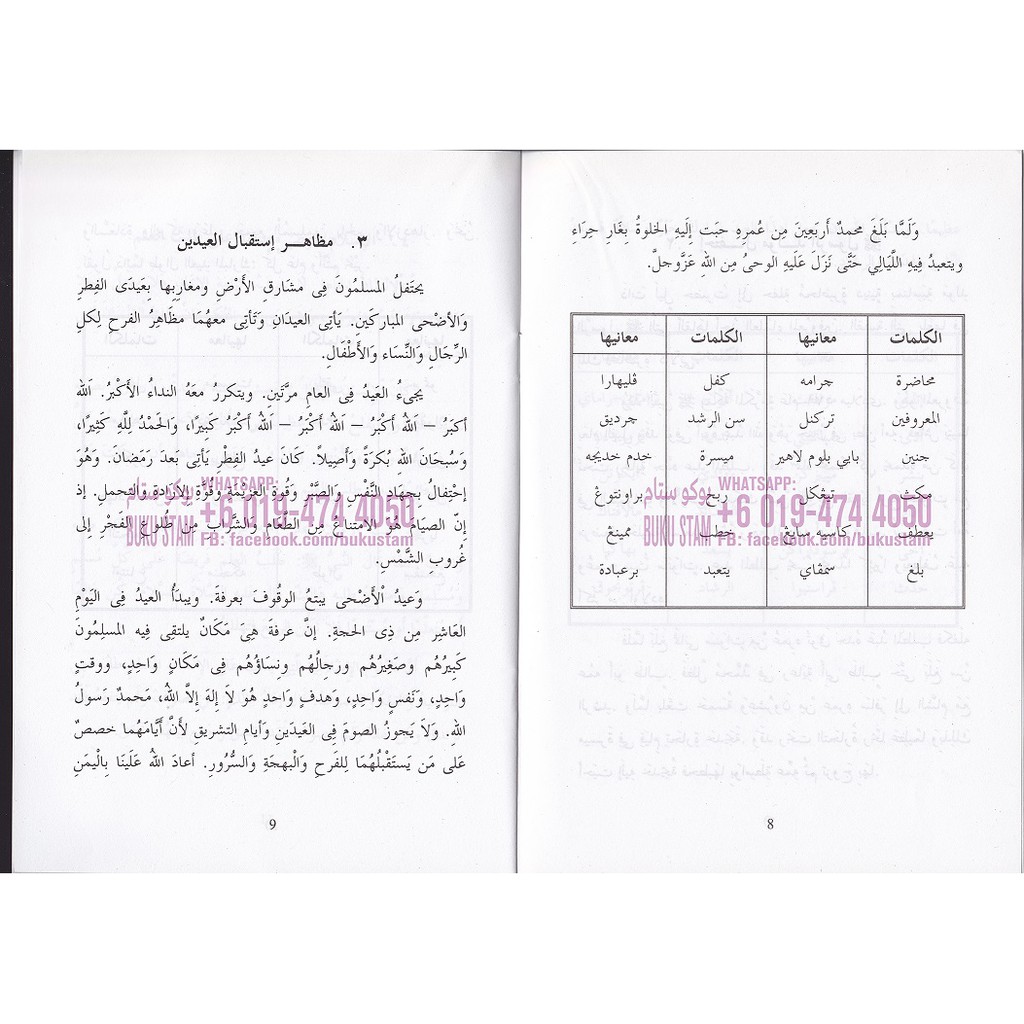 وَلَمَّا بَلَغَ محمدٌ أَربَعِينَ مِن عُمرِهِ حبَبَت إِلَيهِ الخلوةُ بِغَارِ حِرَاءِ
ويتعبدُ فِيهِ اللَّيَالِي حَتَّى نَزَلَ عَلَيهِ الوحىُ مِن اللهِ عَزَّوجلَّ.
الكلمات معانيها الكلمات معانيها
محاضرة چرامه كفل ڤليهارا
المعروفين تركنل سن الرشد چرديق
جنين بايي بلوم لاهير ميسرة خدم خديجه
مكث تيڠكل ربح براونتوڠ
يعطف كاسيه سايڠ خطب ممينڠ
بلغ سمڤاي يتعبد برعبادة
بوكو ستام WHATSAPP:
BUKU STAM +6 019-474 4050
FB: facebook.com/bukustam
8
٣. مظاهـــر إستقبال العيدين
يحتَفلُ المسلمُونَ فِى مشَارقِ الأَرْضِ ومغاربِها بِعَيدَى الفِطرِ
وَالأَضْحى المباركَينِ. يَأتِى العيدَانِ وَتَأتِى معهُمَا مظَاهِرُ الفرحِ لِكلِ
الرِّجَالِ وَالنِّسَاءِ وَالأَطْفَالِ.
يجىءُ العَيدُ فِى العامِ مرَّتَينِ. ويتكررُ معَهُ النداءُ الأَكْبرُ. اَلله
أَكبَرُ – اَللهُ أَكْبَرُ – اَللهُ أَكْبَرُ – اَللهُ أَكْبَرُ كَبِيرًا، وَالحَمْدُ لِلَّهِ كَثِيرًا،
وَسُبحَانَ الله بُكرَةً وَأَصِيلاً. كَانَ عيدُ الفِطْرِ يَأتِى بَعدَ رَمَضَانَ. وَهُوَ
إحْتِفالُ بِجِهَادِ النَّفْسِ وَالصَّبْرِ وَقُوةِ العَزِيْمَةِ وَقُوَّةِ الإِرَادَةِ والتحملِ. إذ
إنّ الصيَامَ هُوَ الامتناعُ مِنَ الطَّعَامِ وَالشَّرَابِ مِن طُلُوعِ الفَجْرِ إِلى
غُروبِ الشَّمْسِ.
بوكو ستام WHATSAPP:
BUKU STAM +6 019-474 4050
FB: facebook.com/bukustam
وَعيدُ الْأَضْحى يبتعُ الوقُوفَ بعرفةَ. ويبدَأُ العيدُ فِى اليَوْمِ
العَاشِرِ مِن ذِى الحجةِ. إنَّ عرفةَ هِىَ مَكَانٌ يلتقِى فِيه المسلِمُونَ
كَبِيرُهُم وصَغِيرُهُم ورجالُهُم ونِسَاؤُهُم فِى مَكَانٍ وَاحِدٍ، ووقتٍ
وَاحِدٍ، وَنَفْسٍ وَاحِدٍ، وَهدفٍ وَاحدٍ هُوَ لاَ إِلهَ إلاَّ اللهُ، مَحمدٌ رَسولُ
اللهِ. وَلاَ يَجوزُ الصومَ فِى العَيدَينِ وَأيامِ التشريقِ لأَنَّ أَيَّامَهُما خصصٌ
عَلى مَن يَستَقْبلُهُمَا لِلفرحِ وَالْبهجَةِ وَالسُّرُورِ. أعادَ اللهُ عَلَينَا بِالْيمَنِ
9